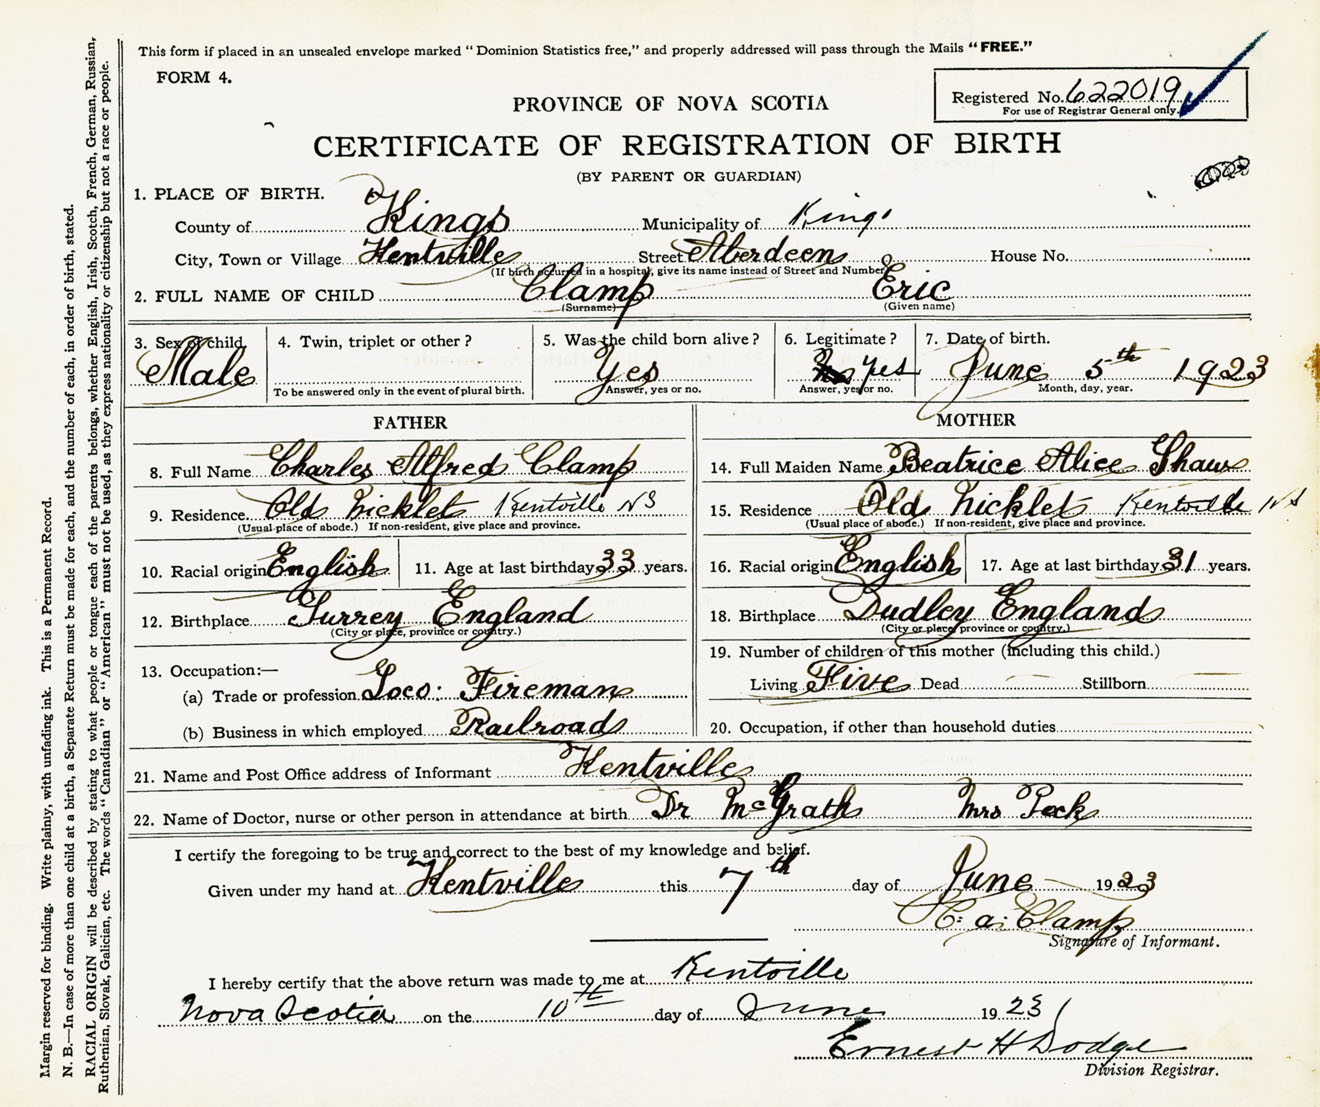 This form if placed in an unsealed envelope marked "Dominion Statistics free," and properly addressed will pass through the Mails "FREE."
FORM 4.
Registered No. 622019
For use of Registrar General only.
PROVINCE OF NOVA SCOTIA
CERTIFICATE OF REGISTRATION OF BIRTH
(BY PARENT OR GUARDIAN)
1. PLACE OF BIRTH.
County of Kings Municipality of Kings
City, Town or Village Kentville Street Aberdeen House No.
(If birth occurred in a hospital, give its name instead of Street and Number)
2. FULL NAME OF CHILD Clamp Eric
(Surname) (Given name)
3. Sex of child Male
4. Twin, triplet or other?
To be answered only in the event of plural birth.
5. Was the child born alive? Yes
Answer, yes or no.
6. Legitimate? yes
Answer, yes or no.
7. Date of birth. June 5th 1923
Month, day, year.
FATHER
8. Full Name Charles Alfred Clamp
9. Residence Old Nicklet Kentville NS
(Usual place of abode.) If non-resident, give place and province.
10. Racial origin English 11. Age at last birthday 33 years.
12. Birthplace Surrey England
(City or place, province or country.)
13. Occupation:—
(a) Trade or profession Loco: Fireman
(b) Business in which employed Railroad
MOTHER
14. Full Maiden Name Beatrice Alice Shaw
15. Residence Old Nicklet Kentville NS
(Usual place of abode.) If non-resident, give place and province.
16. Racial origin English 17. Age at last birthday 31 years.
18. Birthplace Dudley England
(City or place, province or country.)
19. Number of children of this mother (including this child.)
Living Five Dead Stillborn
20. Occupation, if other than household duties
21. Name and Post Office address of Informant Kentville
22. Name of Doctor, nurse or other person in attendance at birth Dr McGrath Mrs Peck
I certify the foregoing to be true and correct to the best of my knowledge and belief.
Given under my hand at Kentville this 7th day of June 1923
C. A. Clamp
Signature of Informant.
I hereby certify that the above return was made to me at Kentville
Nova Scotia on the 10th day of June 1923
Ernest H Dodge
Division Registrar.
Margin reserved for binding. Write plainly, with unfading ink. This is a Permanent Record.
N. B.—In case of more than one child at a birth, a Separate Return must be made for each, and the number of each, in order of birth, stated.
RACIAL ORIGIN will be described by stating to what people or tongue each of the parents belongs, whether English, Irish, Scotch, French, German, Russian,
Ruthenian, Slovak, Galician, etc. The words "Canadian" or "American" must not be used, as they express nationality or citizenship but not a race or people.